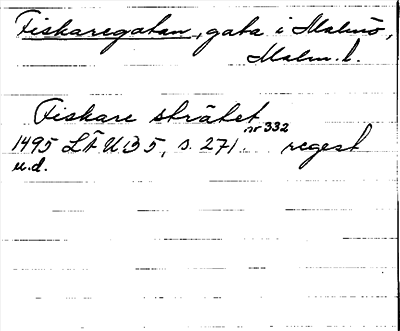 Fiskaregatan, gata i Malmö,
Malm. l.
Fiskare strätet
nr 332
1495 LÄUB 5, s. 271. regest
u.d.